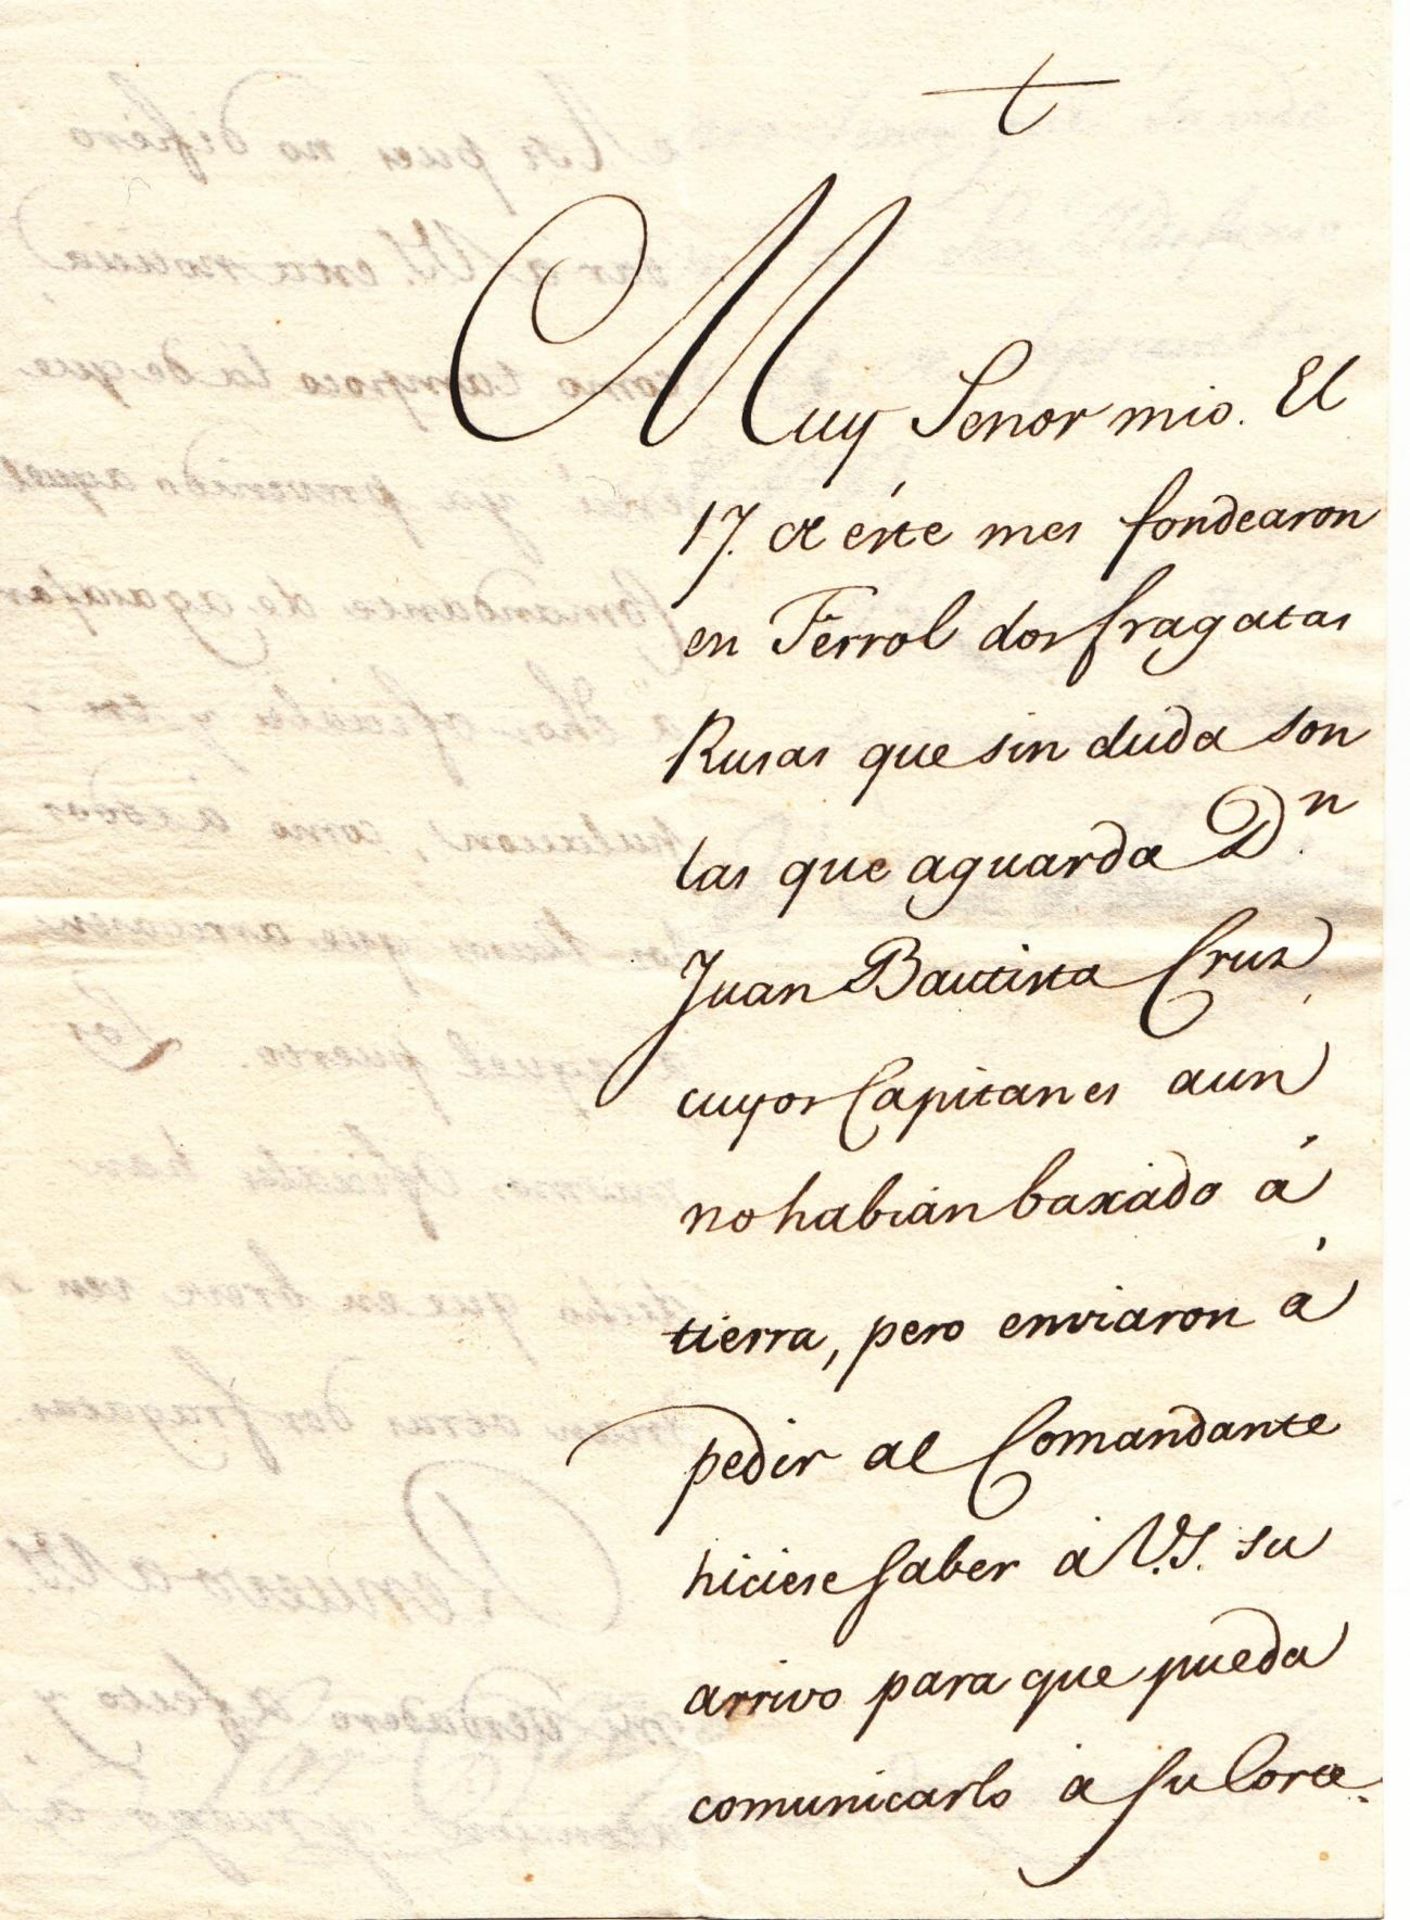 Muy Señor mio. El
17. de éste mes fondearon
en Ferrol dos fragatas
Rusas que sin duda son
las que aguarda Dn.
Juan Bautista Cruz,
cuyos Capitanes aun
no habian baxado á
tierra, pero enviaron á
pedir al Comandante
hiciese saber á V.S. su
arrivo para que pueda
comunicarlo á su Corte.